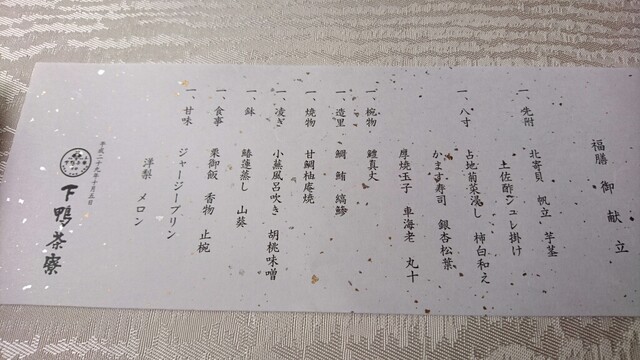 福膳 御献立
一、先附
北寄貝 帆立 芋茎
土佐酢ジュレ掛け
一、八寸
占地菊菜浸し 柿白和え
かます寿司 銀杏松葉
厚焼玉子 車海老 丸十
一、椀物
鱧真丈
一、造里
鯛 鮪 縞鯵
一、焼物
甘鯛柚庵焼
一、凌ぎ
小蕪風呂吹き 胡桃味噌
一、鉢
鰆蓮蒸し 山葵
一、食事
栗御飯 香物 止椀
一、甘味
ジャージープリン
洋梨 メロン
平成二十九年十月五日
下鴨茶寮